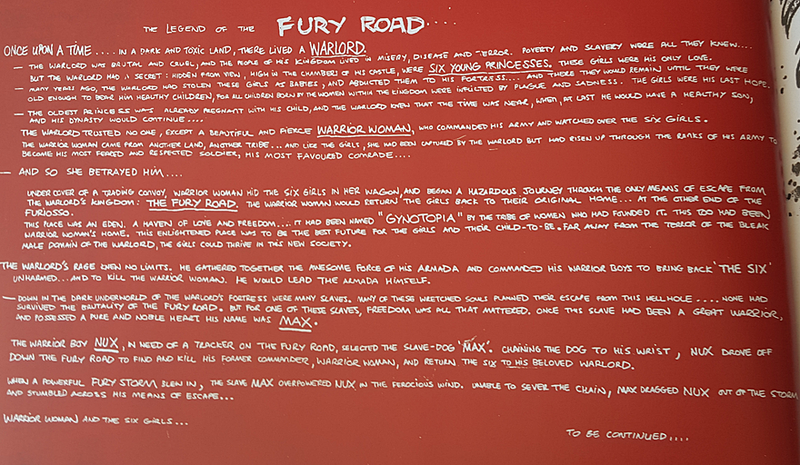 THE LEGEND OF THE FURY ROAD....
ONCE UPON A TIME .... IN A DARK AND TOXIC LAND, THERE LIVED A WARLORD.
— THE WARLORD WAS BRUTAL AND CRUEL, AND THE PEOPLE OF HIS KINGDOM LIVED IN MISERY, DISEASE AND TERROR. POVERTY AND SLAVERY WERE ALL THEY KNEW....
BUT THE WARLORD HAD A SECRET: HIDDEN FROM VIEW, HIGH IN THE CHAMBERS OF HIS CASTLE, WERE SIX YOUNG PRINCESSES. THESE GIRLS WERE HIS ONLY LOVE.
— MANY YEARS AGO, THE WARLORD HAD STOLEN THESE GIRLS AS BABIES, AND ABDUCTED THEM TO HIS FORTRESS.... AND THERE THEY WOULD REMAIN UNTIL THEY WERE
OLD ENOUGH TO BEAR HIM HEALTHY CHILDREN, FOR ALL CHILDREN BORN BY THE WOMEN WITHIN THE KINGDOM WERE INFLICTED BY PLAGUE AND SADNESS. THE GIRLS WERE HIS LAST HOPE.
— THE OLDEST PRINCESS WAS ALREADY PREGNANT WITH HIS CHILD, AND THE WARLORD KNEW THAT THE TIME WAS NEAR, WHEN, AT LAST HE WOULD HAVE A HEALTHY SON,
AND HIS DYNASTY WOULD CONTINUE....
THE WARLORD TRUSTED NO ONE, EXCEPT A BEAUTIFUL AND FIERCE WARRIOR WOMAN, WHO COMMANDED HIS ARMY AND WATCHED OVER THE SIX GIRLS.
THE WARRIOR WOMAN CAME FROM ANOTHER LAND, ANOTHER TRIBE... AND LIKE THE GIRLS, SHE HAD BEEN CAPTURED BY THE WARLORD BUT HAD RISEN UP THROUGH THE RANKS OF HIS ARMY TO
BECOME HIS MOST FEARED AND RESPECTED SOLDIER, HIS MOST FAVOURED COMRADE....
— AND SO SHE BETRAYED HIM....
UNDER COVER OF A TRADING CONVOY, WARRIOR WOMAN HID THE SIX GIRLS IN HER WAGON, AND BEGAN A HAZARDOUS JOURNEY THROUGH THE ONLY MEANS OF ESCAPE FROM
THE WARLORD'S KINGDOM: THE FURY ROAD. THE WARRIOR WOMAN WOULD RETURN THE GIRLS BACK TO THEIR ORIGINAL HOME... AT THE OTHER END OF THE
FURIOSSO.
THIS PLACE WAS AN EDEN. A HAVEN OF LOVE AND FREEDOM.... IT HAD BEEN NAMED "GYNOTOPIA" BY THE TRIBE OF WOMEN WHO HAD FOUNDED IT. THIS TOO HAD BEEN
WARRIOR WOMAN'S HOME. THIS ENLIGHTENED PLACE WAS TO BE THE BEST FUTURE FOR THE GIRLS AND THEIR CHILD-TO-BE. FAR AWAY FROM THE TERROR OF THE BLEAK
MALE DOMAIN OF THE WARLORD, THE GIRLS COULD THRIVE IN THIS NEW SOCIETY.
THE WARLORD'S RAGE KNEW NO LIMITS. HE GATHERED TOGETHER THE AWESOME FORCE OF HIS ARMADA AND COMMANDED HIS WARRIOR BOYS TO BRING BACK 'THE SIX'
UNHARMED... AND TO KILL THE WARRIOR WOMAN. HE WOULD LEAD THE ARMADA HIMSELF.
— DOWN IN THE DARK UNDERWORLD OF THE WARLORD'S FORTRESS WERE MANY SLAVES. MANY OF THESE WRETCHED SOULS PLANNED THEIR ESCAPE FROM THIS HELLHOLE .... NONE HAD
SURVIVED THE BRUTALITY OF THE FURY ROAD. BUT FOR ONE OF THESE SLAVES, FREEDOM WAS ALL THAT MATTERED. ONCE THIS SLAVE HAD BEEN A GREAT WARRIOR,
AND POSSESSED A PURE AND NOBLE HEART. HIS NAME WAS MAX.
THE WARRIOR BOY NUX, IN NEED OF A TRACKER ON THE FURY ROAD, SELECTED THE SLAVE-DOG 'MAX'. CHAINING THE DOG TO HIS WRIST, NUX DROVE OFF
DOWN THE FURY ROAD TO FIND AND KILL HIS FORMER COMMANDER, WARRIOR WOMAN, AND RETURN THE SIX TO HIS BELOVED WARLORD.
WHEN A POWERFUL FURY STORM BLEW IN, THE SLAVE MAX OVERPOWERED NUX IN THE FEROCIOUS WIND. UNABLE TO SEVER THE CHAIN, MAX DRAGGED NUX OUT OF THE STORM
AND STUMBLED ACROSS HIS MEANS OF ESCAPE...
WARRIOR WOMAN AND THE SIX GIRLS...
TO BE CONTINUED....